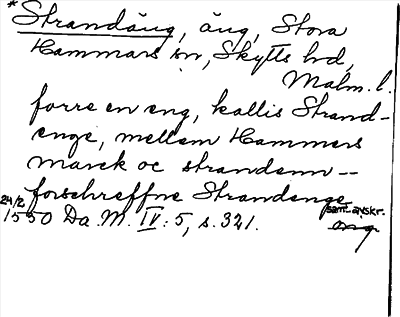 *Strandäng, äng, Stora
Hammars sn, Skytts hd,
Malm. l.
forre en eng, kallis Strand-
enge, mellem Hammers
marck oc strandenn --
forschreffne Strandenge
24/2 1550 Da. M. IV: 5, s. 321.
saml. avskr.